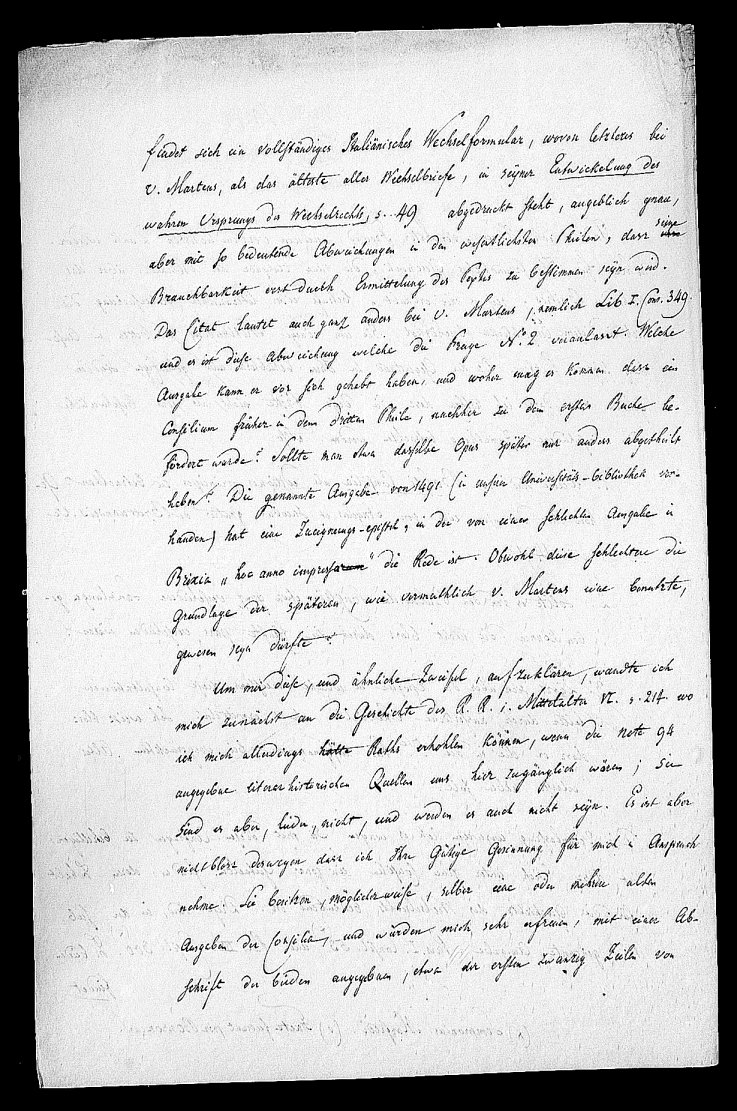 findet sich ein vollständiges Italiänisches Wechselformular, wovon letzteres bei
v. Martens, als das älteste aller Wechselbriefe, in seyner Entwickelung des
wahren Ursprungs des Wechselrechts, s. 49 abgedruckt steht, angeblich genau,
aber mit so bedeutende Abweichungen in den wesentlichsten Theilen, dass seine
Brauchbarkeit erst durch Ermittelung des Textes zu bestimmen seyn wird.
Das Citat lautet auch ganz anders bei v. Martens, nemlich Lib I. Cons. 349
und es ist diese Abweichung welche die Frage N.º 2 veranlasst. Welche
Ausgabe kann er vor sich gehabt haben, und woher mag es kommen dass ein
Consilium früher in dem dritten Theile, nachher zu dem ersten Buche be-
fördert wurde? Sollte man etwa dasselbe Opus später nur anders abgetheilt
haben? Die genannte Ausgabe von 1491 (in unsrer Universitäts-bibliothek vor-
handen) hat eine Zueignungs-epistel, in der von einer schlechten Ausgabe in
Brixia „hoc anno impressarum" die Rede ist. Obwohl diese schlechtere die
Grundlage der späteren, wie vermuthlich v. Martens eine benutzte,
gewesen seyn dürfte?
Um mir diese, und ähnliche Zweifel, aufzuklären, wandte ich
mich zunächst an die Geschichte des R. R. i. Mittelalter VI. s. 214. wo
ich mich allerdings hätte Raths erhohlen können, wenn die note 94
angegebne literarhistorischen Quellen uns hier zugänglich wären; sie
sind es aber, leider, nicht, und werden es auch nicht seyn. Es ist aber
nicht bloss deswegen dass ich Ihre Gütige Gesinnung für mich in Anspruch
nehme. Sie besitzen, möglicherweise, selber eine oder mehrere alten
Ausgaben der Consilia, und würden mich sehr erfreuen, mit einer Ab-
schrift der beiden angegebnen, etwa der ersten zwanzig Zeilen von